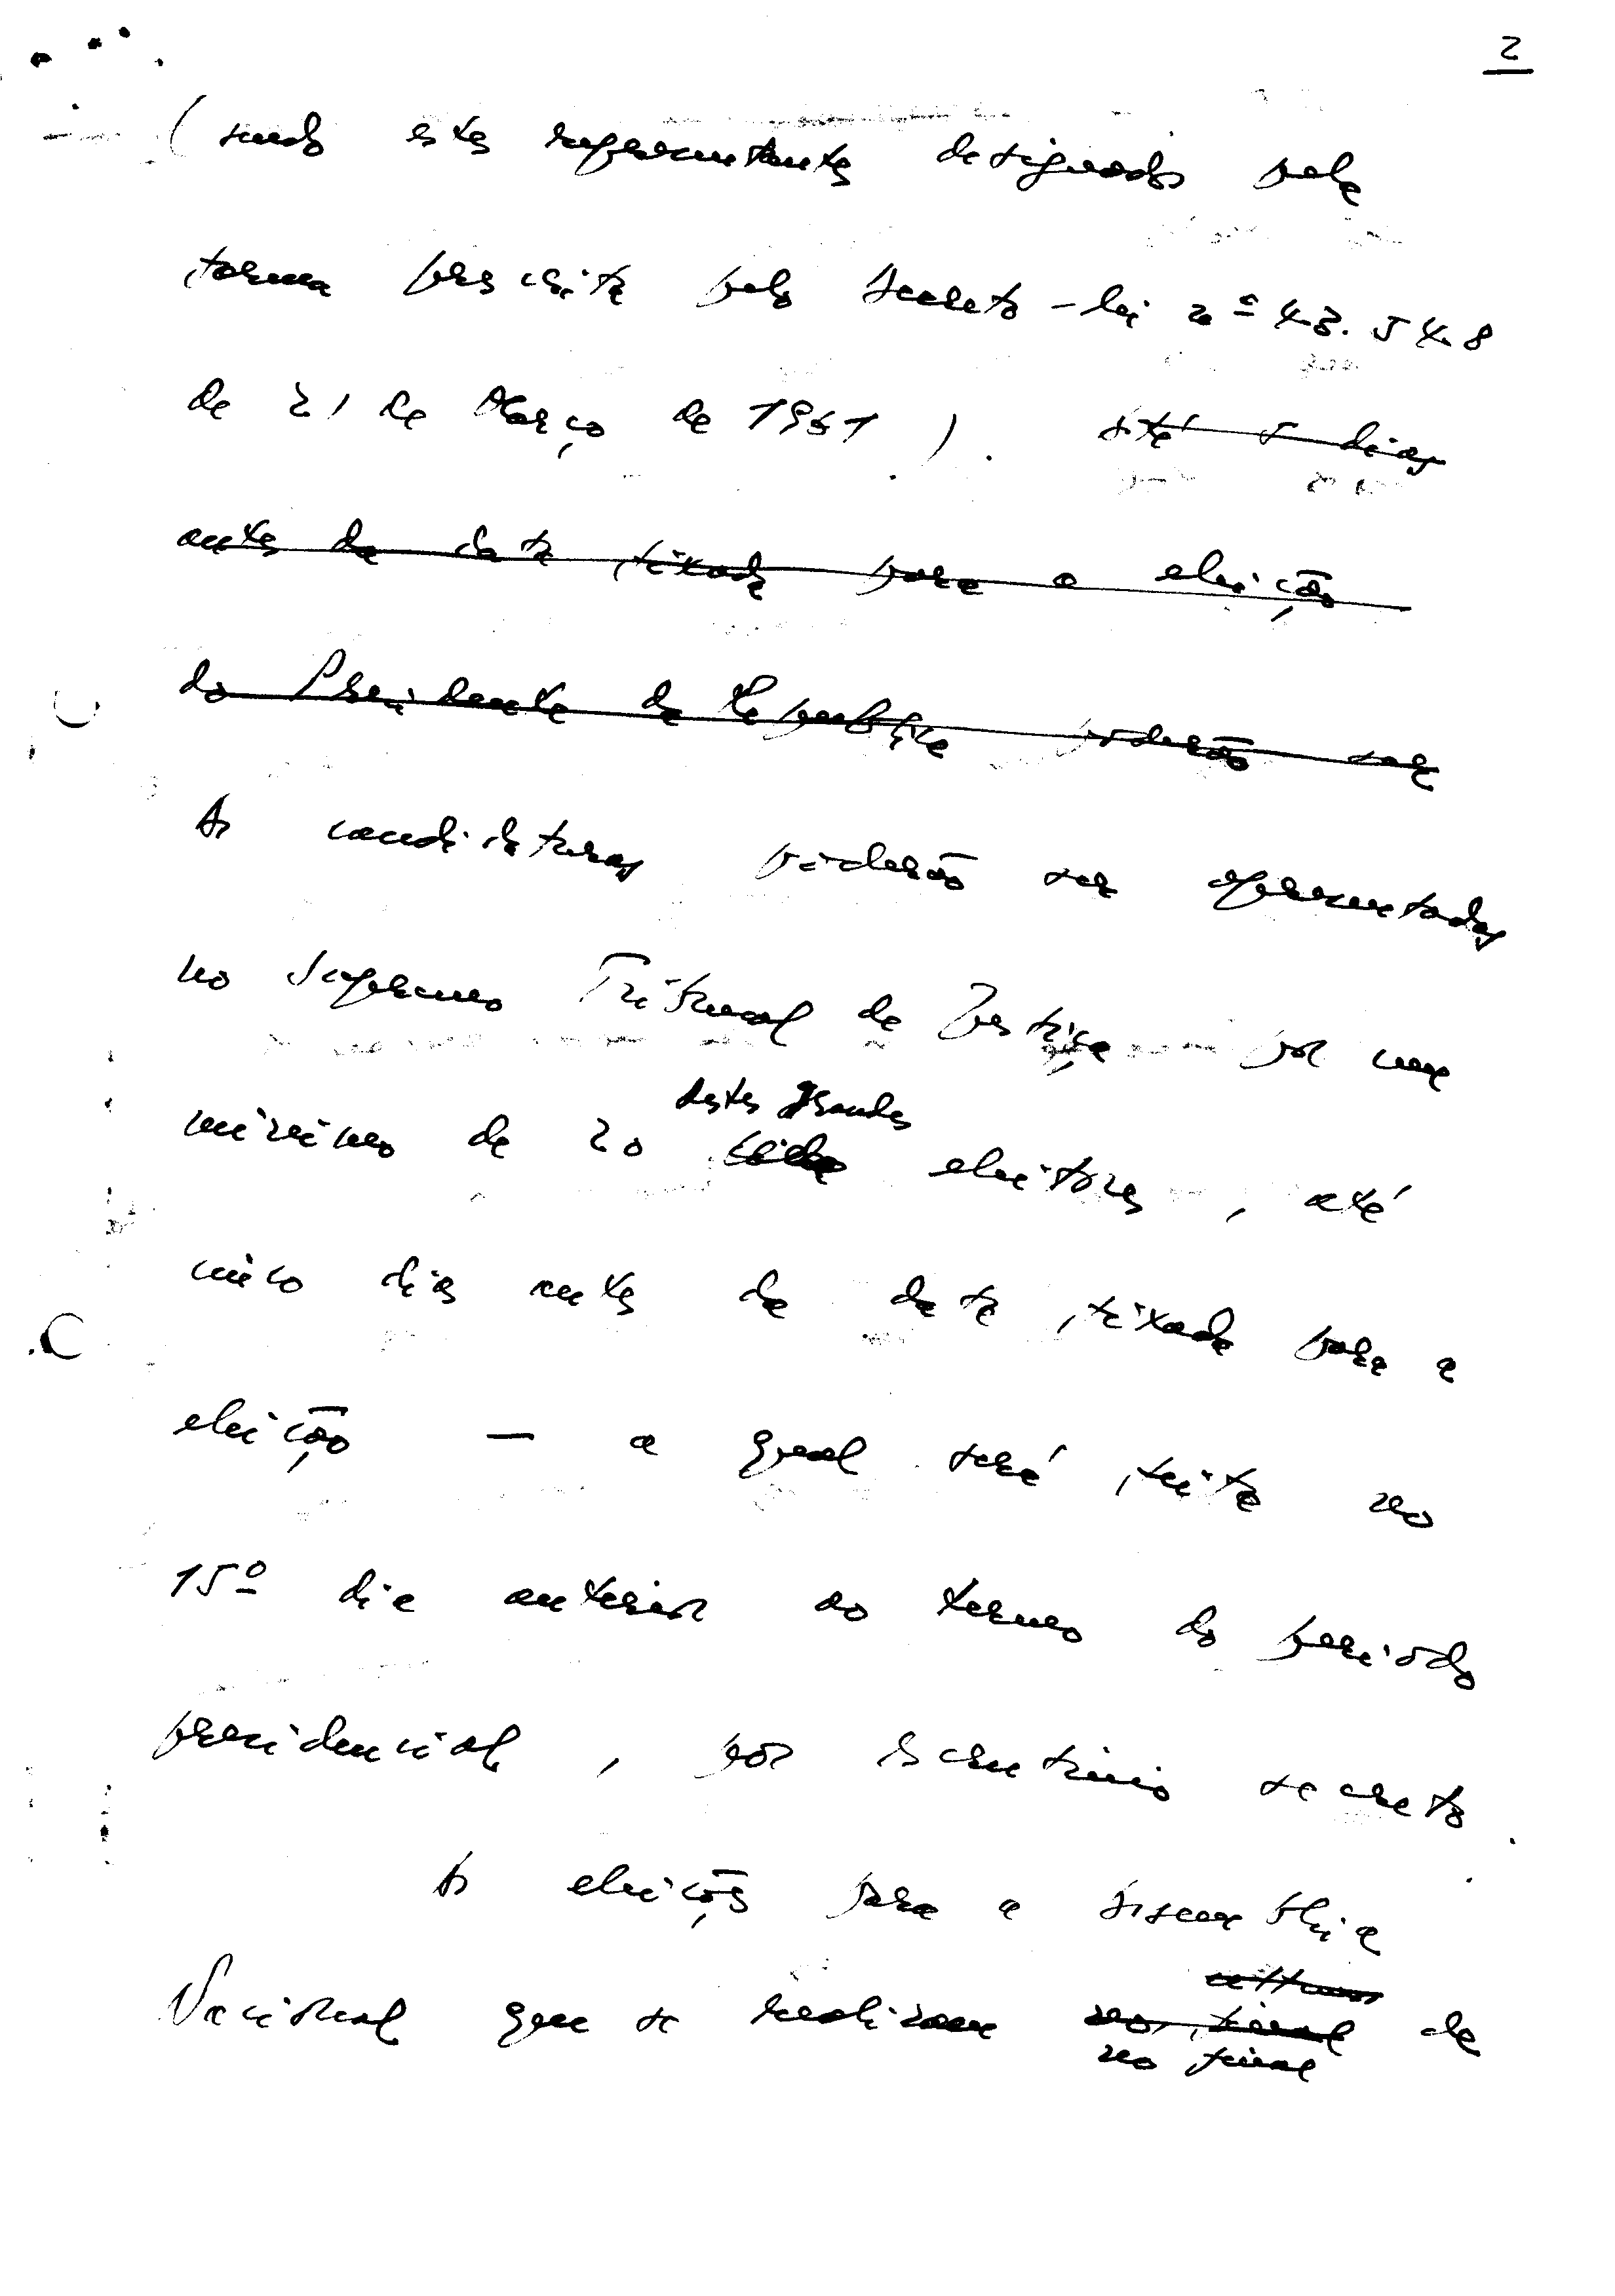 2
(sendo estes representantes designados pela
forma prescrita pelo Decreto-lei nº 43.548
de 21 de Março de 1961). Até 5 dias
antes da data fixada para a eleição
do Presidente da República poderão ser
As candidaturas poderão ser apresentadas
no Supremo Tribunal de Justiça por um
destes grandes
mínimo de 20 eleitores, até
cinco dias antes da data fixada para a
eleição — a qual será feita no
15º dia anterior ao termo do período
presidencial, por escrutínio secreto.
As eleições para a Assembleia
Nacional que se realizam no final de
no final